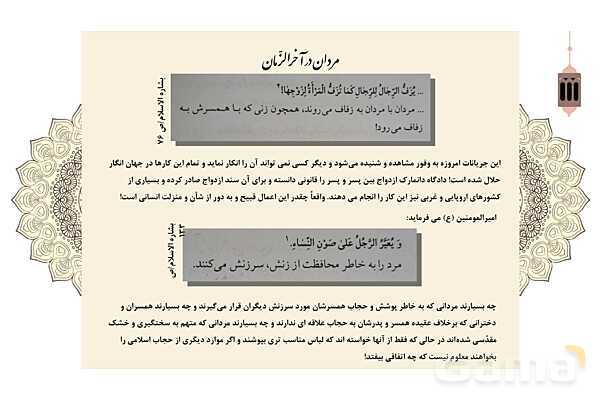 مردان در آخرالزّمان
... يُزَفُّ الرِّجالُ لِلرِّجالِ كَما تُزَفُّ الْمَرْأَةُ لِزَوْجِها!۲
... مردان با مردان به زفاف می‌روند، همچون زنی که با همسرش به
زفاف می‌رود!
بشاره الاسلام/ص ۷۶
این جریانات امروزه به وفور مشاهده و شنیده می‌شود و دیگر کسی نمی تواند آن را انکار نماید و تمام این کارها در جهان انگار
حلال شده است! دادگاه دانمارک ازدواج بین پسر و پسر را قانونی دانسته و برای آن سند ازدواج صادر کرده و بسیاری از
کشورهای اروپایی و غربی نیز این کار را انجام می دهند. واقعاً چقدر این اعمال قبیح و به دور از شأن و منزلت انسانی است!
امیرالمومنین (ع) می فرماید:
وَ يُعَيَّرُ الرَّجُلُ عَلىٰ صَوْنِ النِّساءِ.۱
مرد را به خاطر محافظت از زنش، سرزنش می‌کنند.
بشاره الاسلام/ص ۱۳۳
چه بسیارند مردانی که به خاطر پوشش و حجاب همسرشان مورد سرزنش دیگران قرار می‌گیرند و چه بسیارند همسران و
دخترانی که برخلاف عقیده همسر و پدرشان به حجاب علاقه ای ندارند و چه بسیارند مردانی که متهم به سختگیری و خشک
مقدّسی شده‌اند در حالی که فقط از آنها خواسته اند که لباس مناسب تری بپوشند و اگر موارد دیگری از حجاب اسلامی را
بخواهند معلوم نیست که چه اتفاقی بیفتد!
Gama